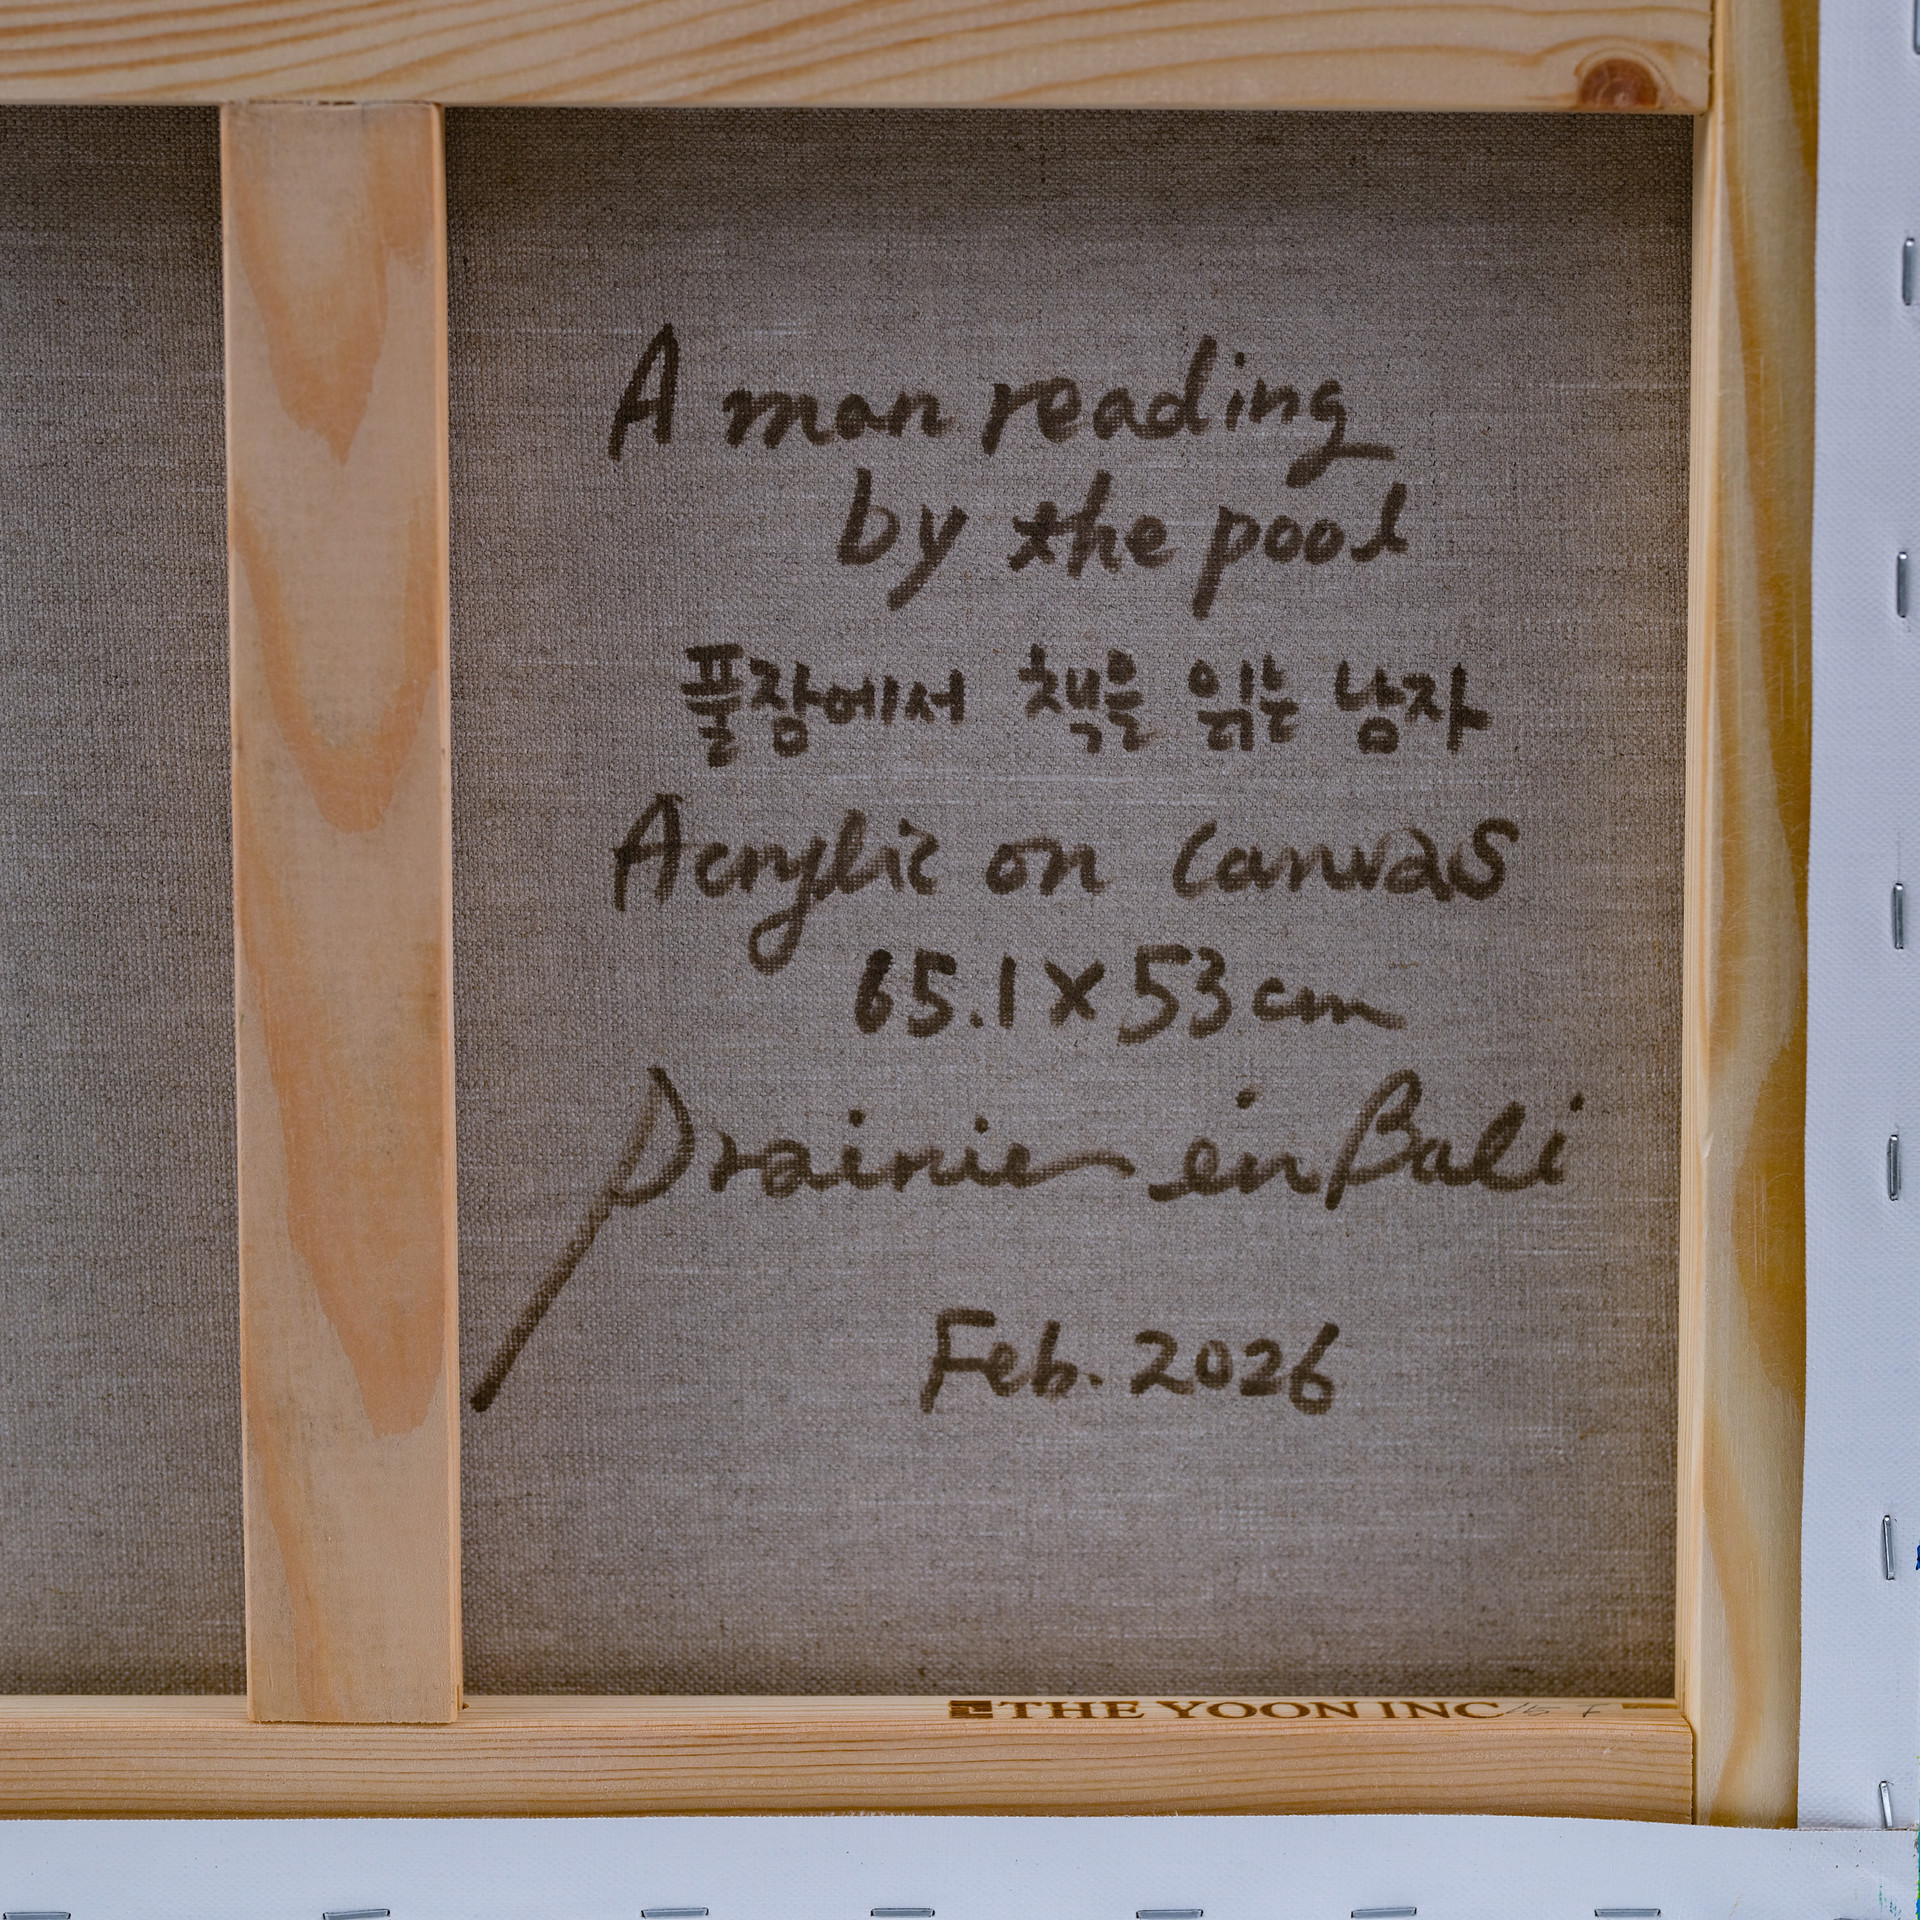 A man reading
by the pool
풀장에서 책을 읽는 남자
Acrylic on canvas
65.1 x 53 cm
Prairie in Bali
Feb. 2026
THE YOON INC